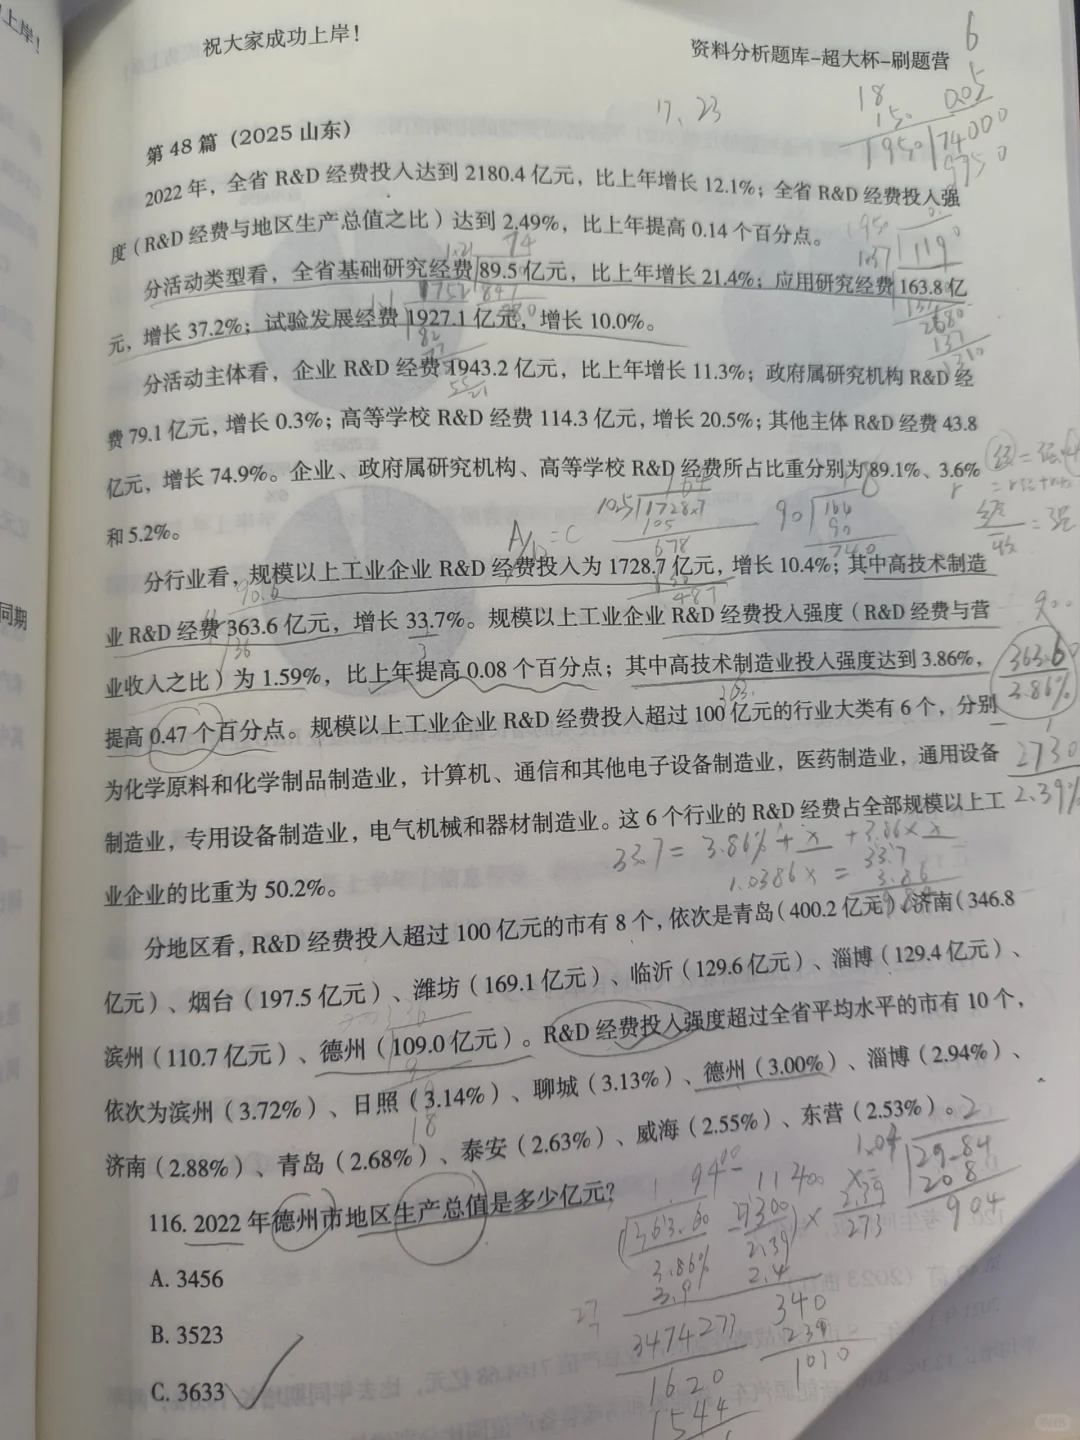 上岸！
祝大家成功上岸！
资料分析题库-超大杯-刷题营
6
17、23
18
150
0.05
1950
74000
9750
第 48 篇（2025 山东）
2022 年，全省 R&D 经费投入达到 2180.4 亿元，比上年增长 12.1%；全省 R&D 经费投入强
度（R&D 经费与地区生产总值之比）达到 2.49%，比上年提高 0.14 个百分点。
1.21
74
分活动类型看，全省基础研究经费 89.5 亿元，比上年增长 21.4%；应用研究经费 163.8 亿
元，增长 37.2%；试验发展经费 1927.1 亿元，增长 10.0%。
分活动主体看，企业 R&D 经费 1943.2 亿元，比上年增长 11.3%；政府属研究机构 R&D 经
费 79.1 亿元，增长 0.3%；高等学校 R&D 经费 114.3 亿元，增长 20.5%；其他主体 R&D 经费 43.8
亿元，增长 74.9%。企业、政府属研究机构、高等学校 R&D 经费所占比重分别为 89.1%、3.6%
和 5.2%。
164
105
1728.7
105
678
90
164
90
740
487
A/B=C
分行业看，规模以上工业企业 R&D 经费投入为 1728.7 亿元，增长 10.4%；其中高技术制造
业 R&D 经费 363.6 亿元，增长 33.7%。规模以上工业企业 R&D 经费投入强度（R&D 经费与营
业收入之比）为 1.59%，比上年提高 0.08 个百分点；其中高技术制造业投入强度达到 3.86%，
363.6
3.86%
提高 0.47 个百分点。规模以上工业企业 R&D 经费投入超过 100 亿元的行业大类有 6 个，分别
为化学原料和化学制品制造业，计算机、通信和其他电子设备制造业，医药制造业，通用设备
2730
2.39%
制造业，专用设备制造业，电气机械和器材制造业。这 6 个行业的 R&D 经费占全部规模以上工
33.7 = 3.86% + x + 3.86% x
1.0386x = 33.7
3.86
业企业的比重为 50.2%。
分地区看，R&D 经费投入超过 100 亿元的市有 8 个，依次是青岛（400.2 亿元）、济南（346.8
亿元）、烟台（197.5 亿元）、潍坊（169.1 亿元）、临沂（129.6 亿元）、淄博（129.4 亿元）、
滨州（110.7 亿元）、德州（109.0 亿元）。R&D 经费投入强度超过全省平均水平的市有 10 个，
依次为滨州（3.72%）、日照（3.14%）、聊城（3.13%）、德州（3.00%）、淄博（2.94%）、
18
济南（2.88%）、青岛（2.68%）、泰安（2.63%）、威海（2.55%）、东营（2.53%）。
2
1.04
29.84
208
904
116. 2022 年德州市地区生产总值是多少亿元？
9400
11400
363.60
3.86%
3.9
2.39
2.4
273
A. 3456
27
340
239
1010
B. 3523
3474
277
1620
1544
C. 3633
同期